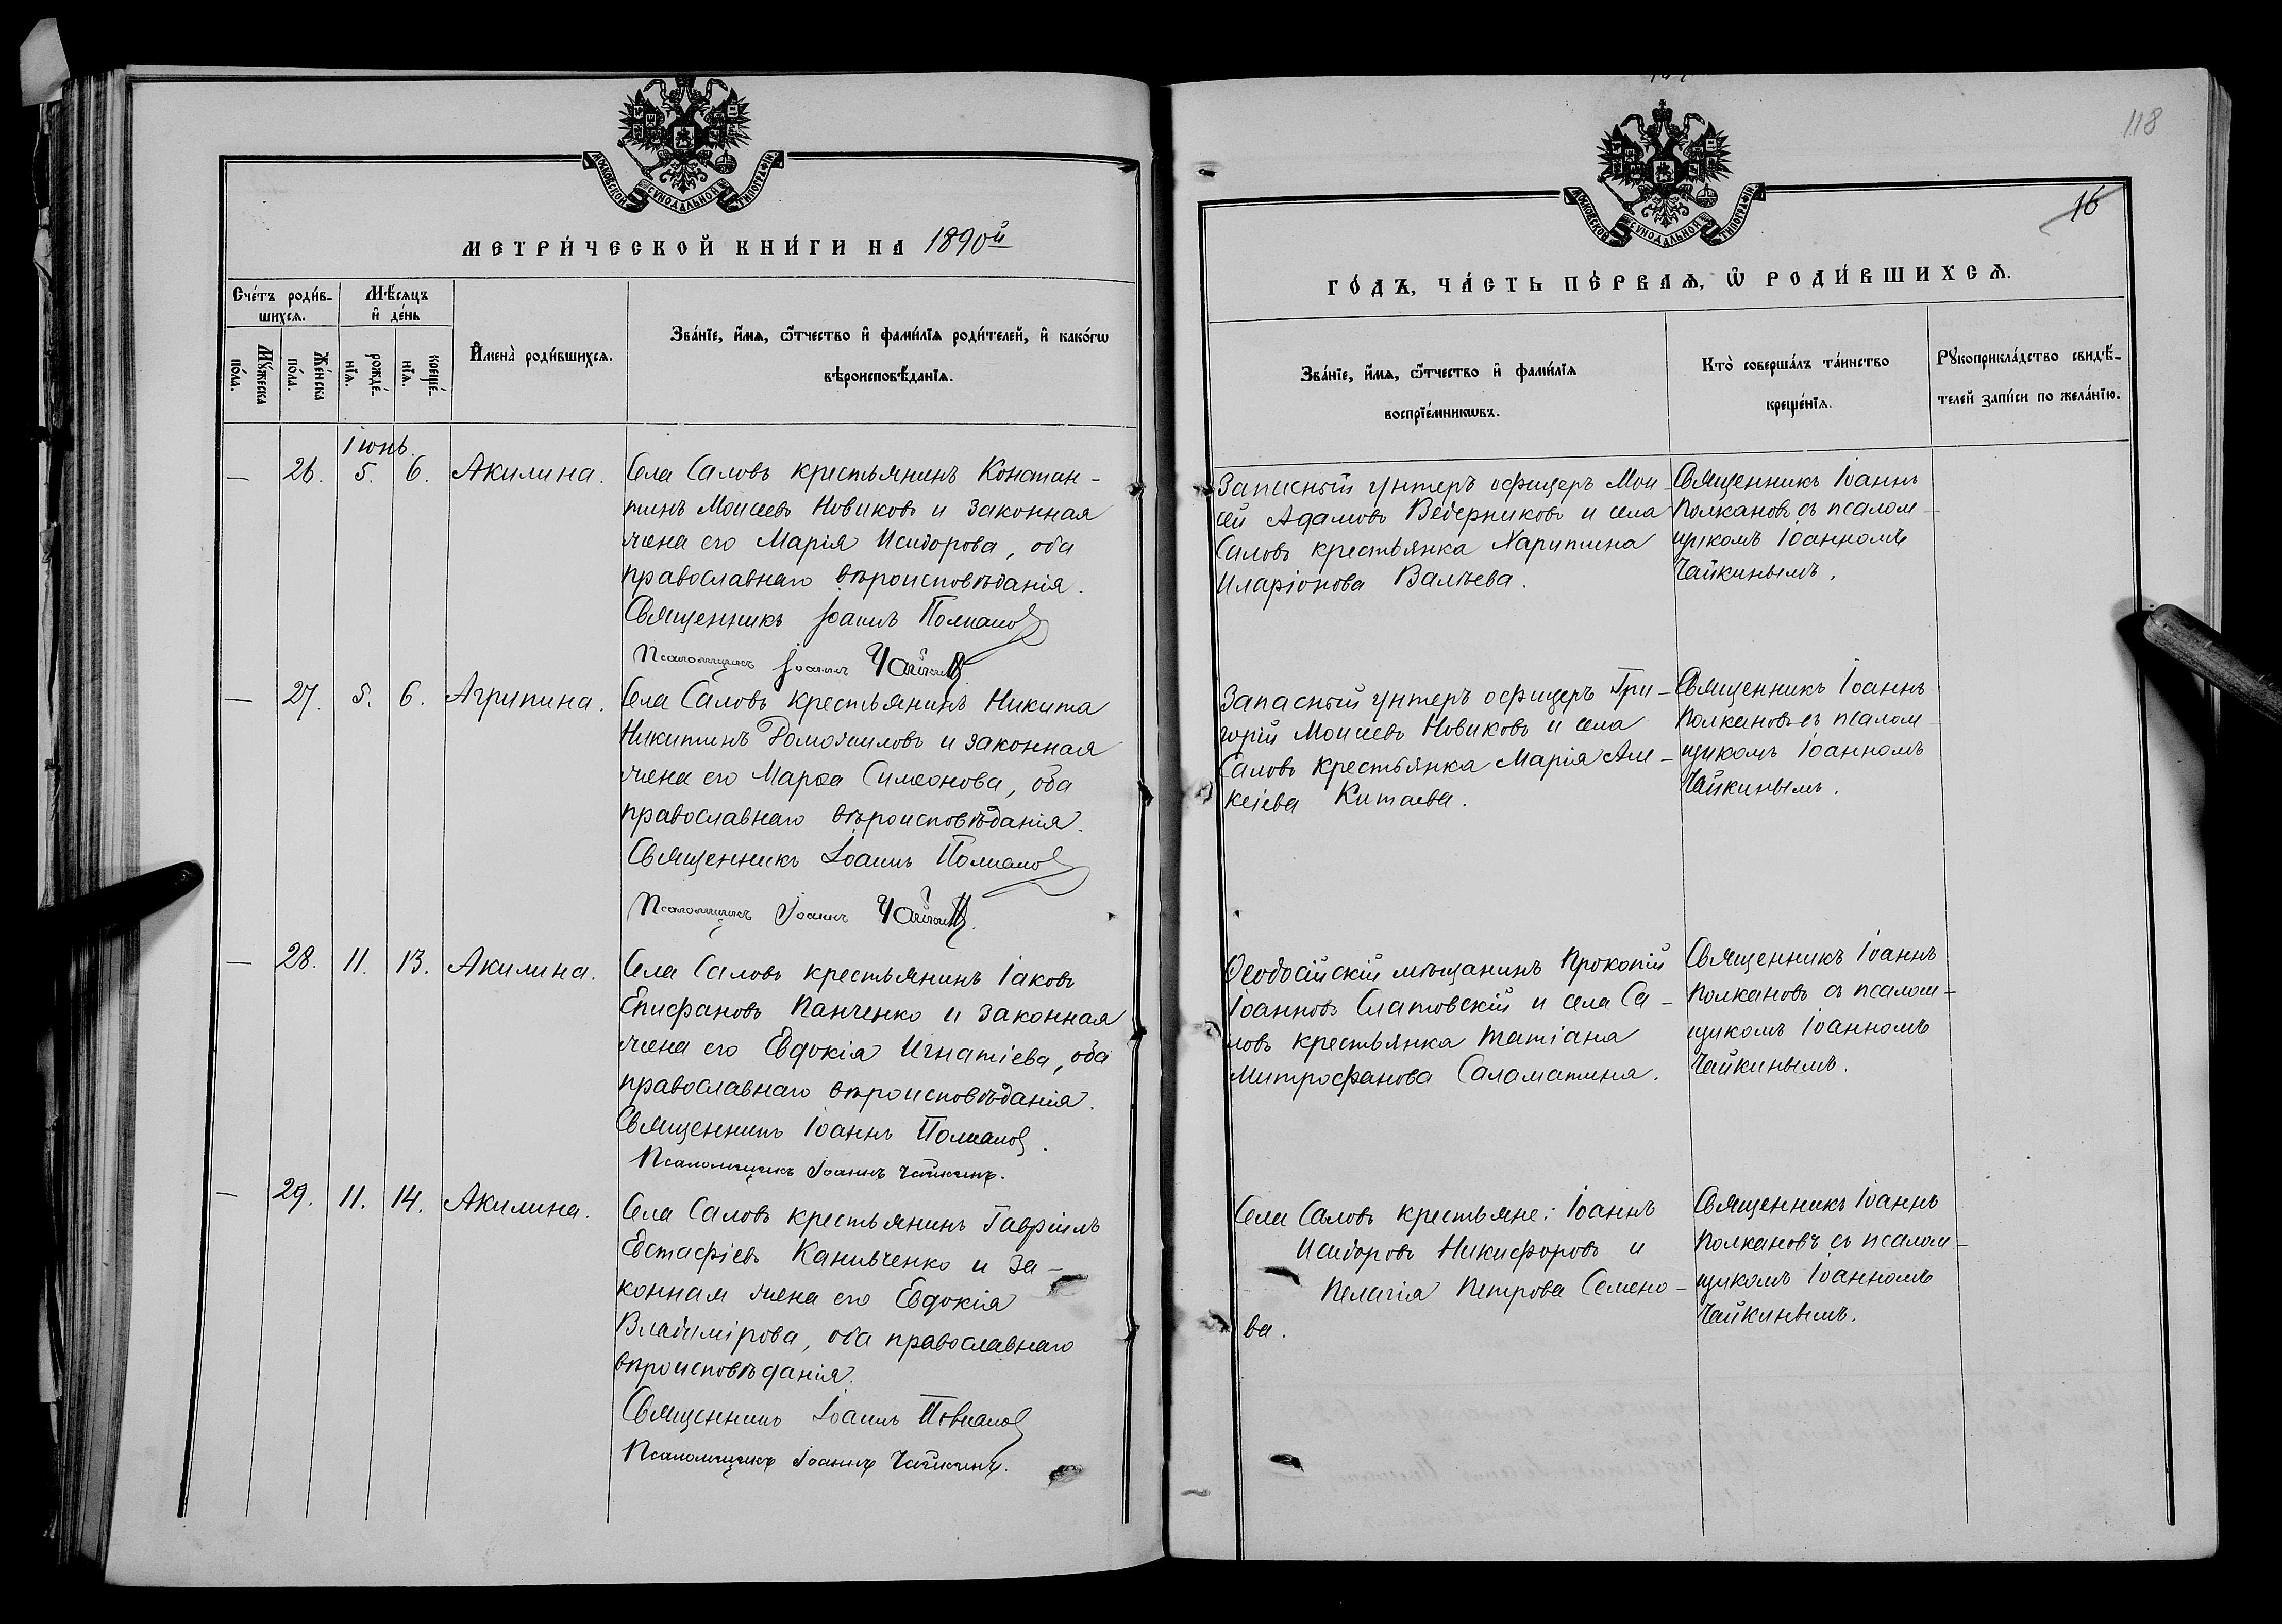 МОСКОВСКОЙ СѴНОДАЛЬНОЙ ТИПОГРАФІИ.
МЕТРИ́ЧЕСКОЙ КНИ́ГИ НА 1890й
Сче́тъ роди́в-
шихсѧ.
Мѣ́сяцъ
и҆ де́нь
Мꙋ́жеска
по́ла.
Же́нска
по́ла.
рожде́-
нїѧ.
креще́-
нїѧ.
И҆мена̀ роди́вшихсѧ.
Зва́нїе, и҆́мѧ, ѻ҆́тчество и҆ фами́лїѧ роди́телей, и҆ како́гѡ
вѣроисповѣ́данїѧ.
Іюнь.
— 26. 5. 6. Акилина.
Села Саловъ крестьянинъ Констан-
тинъ Моисеевъ Новиковъ и законная
жена его Марія Исидорова, оба
православнаго вѣроисповѣданія.
Священникъ Іоаннъ Полкановъ
Псаломщикъ Іоаннъ Чайкинъ
— 27. 5. 6. Агрипина.
Села Саловъ крестьянинъ Никита
Никитинъ Доможиловъ и законная
жена его Марѳа Симеонова, оба
православнаго вѣроисповѣданія.
Священникъ Іоаннъ Полкановъ
Псаломщикъ Іоаннъ Чайкинъ.
— 28. 11. 13. Акилина.
Села Саловъ крестьянинъ Іаковъ
Епифановъ Панченко и законная
жена его Евдокія Игнатіева, оба
православнаго вѣроисповѣданія.
Священникъ Іоаннъ Полкановъ.
Псаломщикъ Іоаннъ Чайкинъ.
— 29. 11. 14. Акилина.
Села Саловъ крестьянинъ Гавріилъ
Евстафіевъ Канивченко и за-
конная жена его Евдокія
Владимірова, оба православнаго
вѣроисповѣданія.
Священникъ Іоаннъ Полкановъ
Псаломщикъ Іоаннъ Чайкинъ.
118
16
МОСКОВСКОЙ СѴНОДАЛЬНОЙ ТИПОГРАФІИ.
ГО́ДЪ, ЧА́СТЬ ПЕ́РВАѦ, Ѽ РОДИ́ВШИХСѦ.
Зва́нїе, и҆́мѧ, ѻ҆́тчество и҆ фами́лїѧ
воспрїе́мникѡвъ.
Кто̀ соверша́лъ та́инство
креще́нїѧ.
Рꙋкоприкла́дство свидѣ́-
телей запи́си по жела́нїю.
Запасный унтеръ офицеръ Мои-
сей Адамовъ Ведерниковъ и села
Саловъ крестьянка Харитина
Иларіонова Валѣева.
Священникъ Іоаннъ
Полкановъ съ псалом-
щикомъ Іоанномъ
Чайкинымъ.
Запасный унтеръ офицеръ Гри-
горій Моисеевъ Новиковъ и села
Саловъ крестьянка Марія Але-
ксіева Китаева.
Священникъ Іоаннъ
Полкановъ съ псалом-
щикомъ Іоанномъ
Чайкинымъ.
Ѳеодосійскій мѣщанинъ Прокопій
Іоанновъ Слатовскій и села Са-
ловъ крестьянка Татіана
Митрофанова Саламатина.
Священникъ Іоаннъ
Полкановъ съ псалом-
щикомъ Іоанномъ
Чайкинымъ.
Села Саловъ крестьяне: Іоаннъ
Исидоровъ Никифоровъ и
Пелагія Петрова Семено-
ва.
Священникъ Іоаннъ
Полкановъ съ псалом-
щикомъ Іоанномъ
Чайкинымъ.